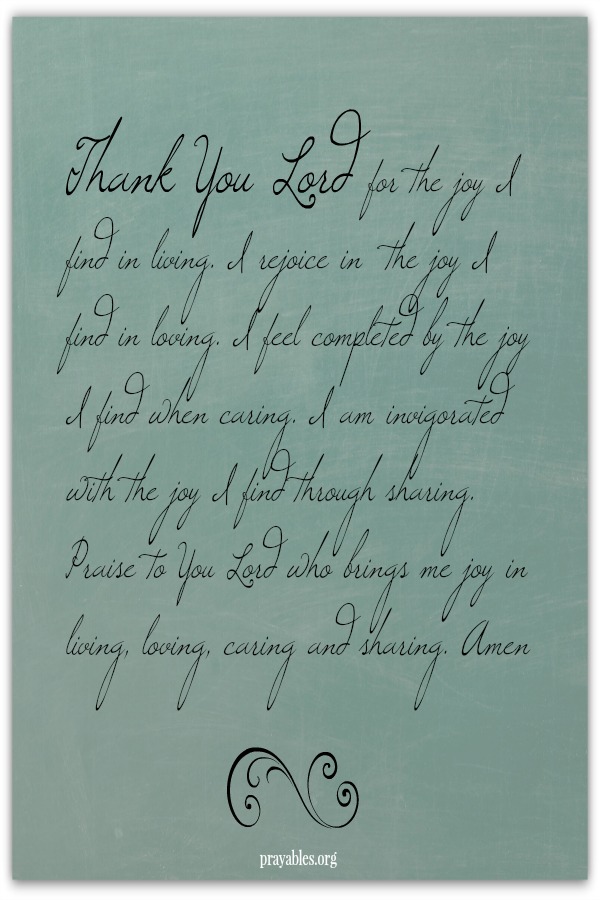 Thank You Lord for the joy I
find in living. I rejoice in the joy I
find in loving. I feel completed by the joy
I find when caring. I am invigorated
with the joy I find through sharing.
Praise to You Lord who brings me joy in
living, loving, caring and sharing. Amen
prayables.org